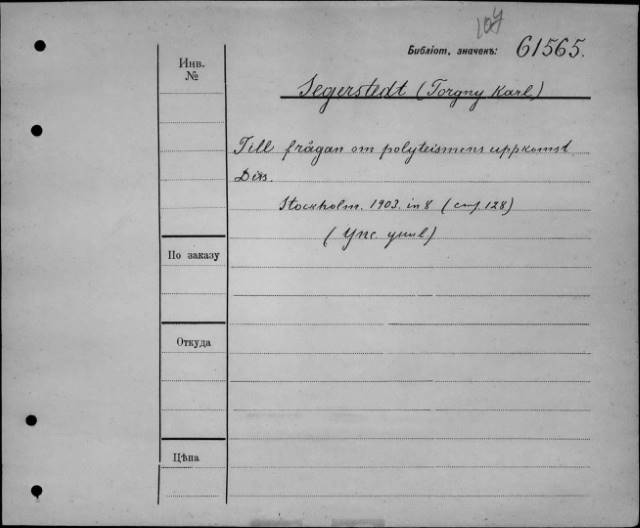 107
Библіот. значекъ: 61565.
Инв.
№
Segerstedt (Torgny Karl)
Till frågan om polyteismens uppkomst
Diss.
Stockholm. 1903. in 8 (стр. 128)
(Упс. унив)
По заказу
Откуда
Цѣна